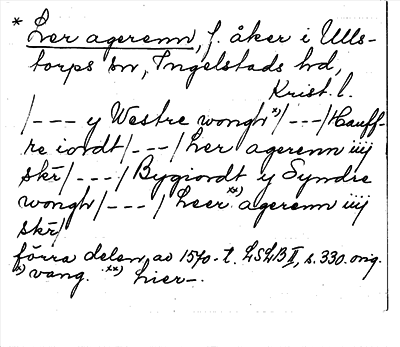 * Ler agerenn, f. åker i Ulls-
torps sn, Ingelstads hd,
Krist. l.
/--- y Westre wongh x) /---/ Hauff-
re iordt /---/ Ler agerenn iiij
skr/ /---/ Bygiordt y Syndre
wongh /---/ Leer xx) agerenn iiij
skr/
förra delen av 1570-t. LSLB II, s. 330. orig.
x) vang. xx) hier-.